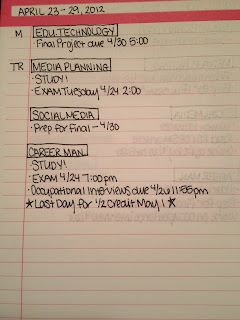 APRIL 23-29, 2012
M EDU. TECHNOLOGY
· Final Project due 4/30 5:00
TR MEDIA PLANNING
· STUDY!
· EXAM Tuesday 4/24 2:00
SOCIAL MEDIA
· Prep for final - 4/30
CAREER MAN.
· STUDY!
· EXAM 4/24 7:00pm
· Occupational Interviews due 4/26 11:55pm
★ Last Day for 1/2 Credit May 1 ★